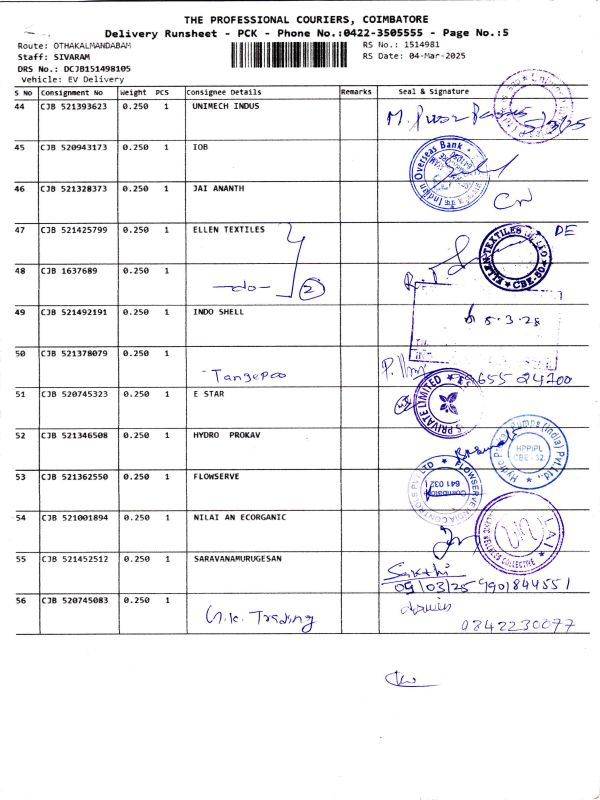 THE PROFESSIONAL COURIERS, COIMBATORE
Delivery Runsheet - PCK - Phone No.:0422-3505555 - Page No.:5
Route: OTHAKALMANDABAM RS No.: 1514981
Staff: SIVARAM RS Date: 04-Mar-2025
DRS No.: DCJB151498105
Vehicle: EV Delivery
S No Consignment No Weight PCS Consignee Details Remarks Seal & Signature
44 CJB 521393623 0.250 1 UNIMECH INDUS
5/3/25
45 CJB 520943173 0.250 1 IOB
Indian Overseas Bank
46 CJB 521328373 0.250 1 JAI ANANTH
47 CJB 521425799 0.250 1 ELLEN TEXTILES
DE
ELLEN TEXTILES CBE-50
48 CJB 1637689 0.250 1 -do- 2
49 CJB 521492191 0.250 1 INDO SHELL
5.3.25
50 CJB 521378079 0.250 1
51 CJB 520745323 0.250 1 E STAR
PRIVATE LIMITED
52 CJB 521346508 0.250 1 HYDRO PROKAV
Hydro Pumps (India) Pvt. Ltd. HPPIPL CBE - 32
53 CJB 521362550 0.250 1 FLOWSERVE
FLOWSERVE INDIA CONTROLS PVT LTD Coimbatore 641 032
54 CJB 521001894 0.250 1 NILAI AN ECORGANIC
COLLECTIVE
55 CJB 521452512 0.250 1 SARAVANAMURUGESAN
Sakthi
05/03/25 9901844551
56 CJB 520745083 0.250 1 Trading
9842230077